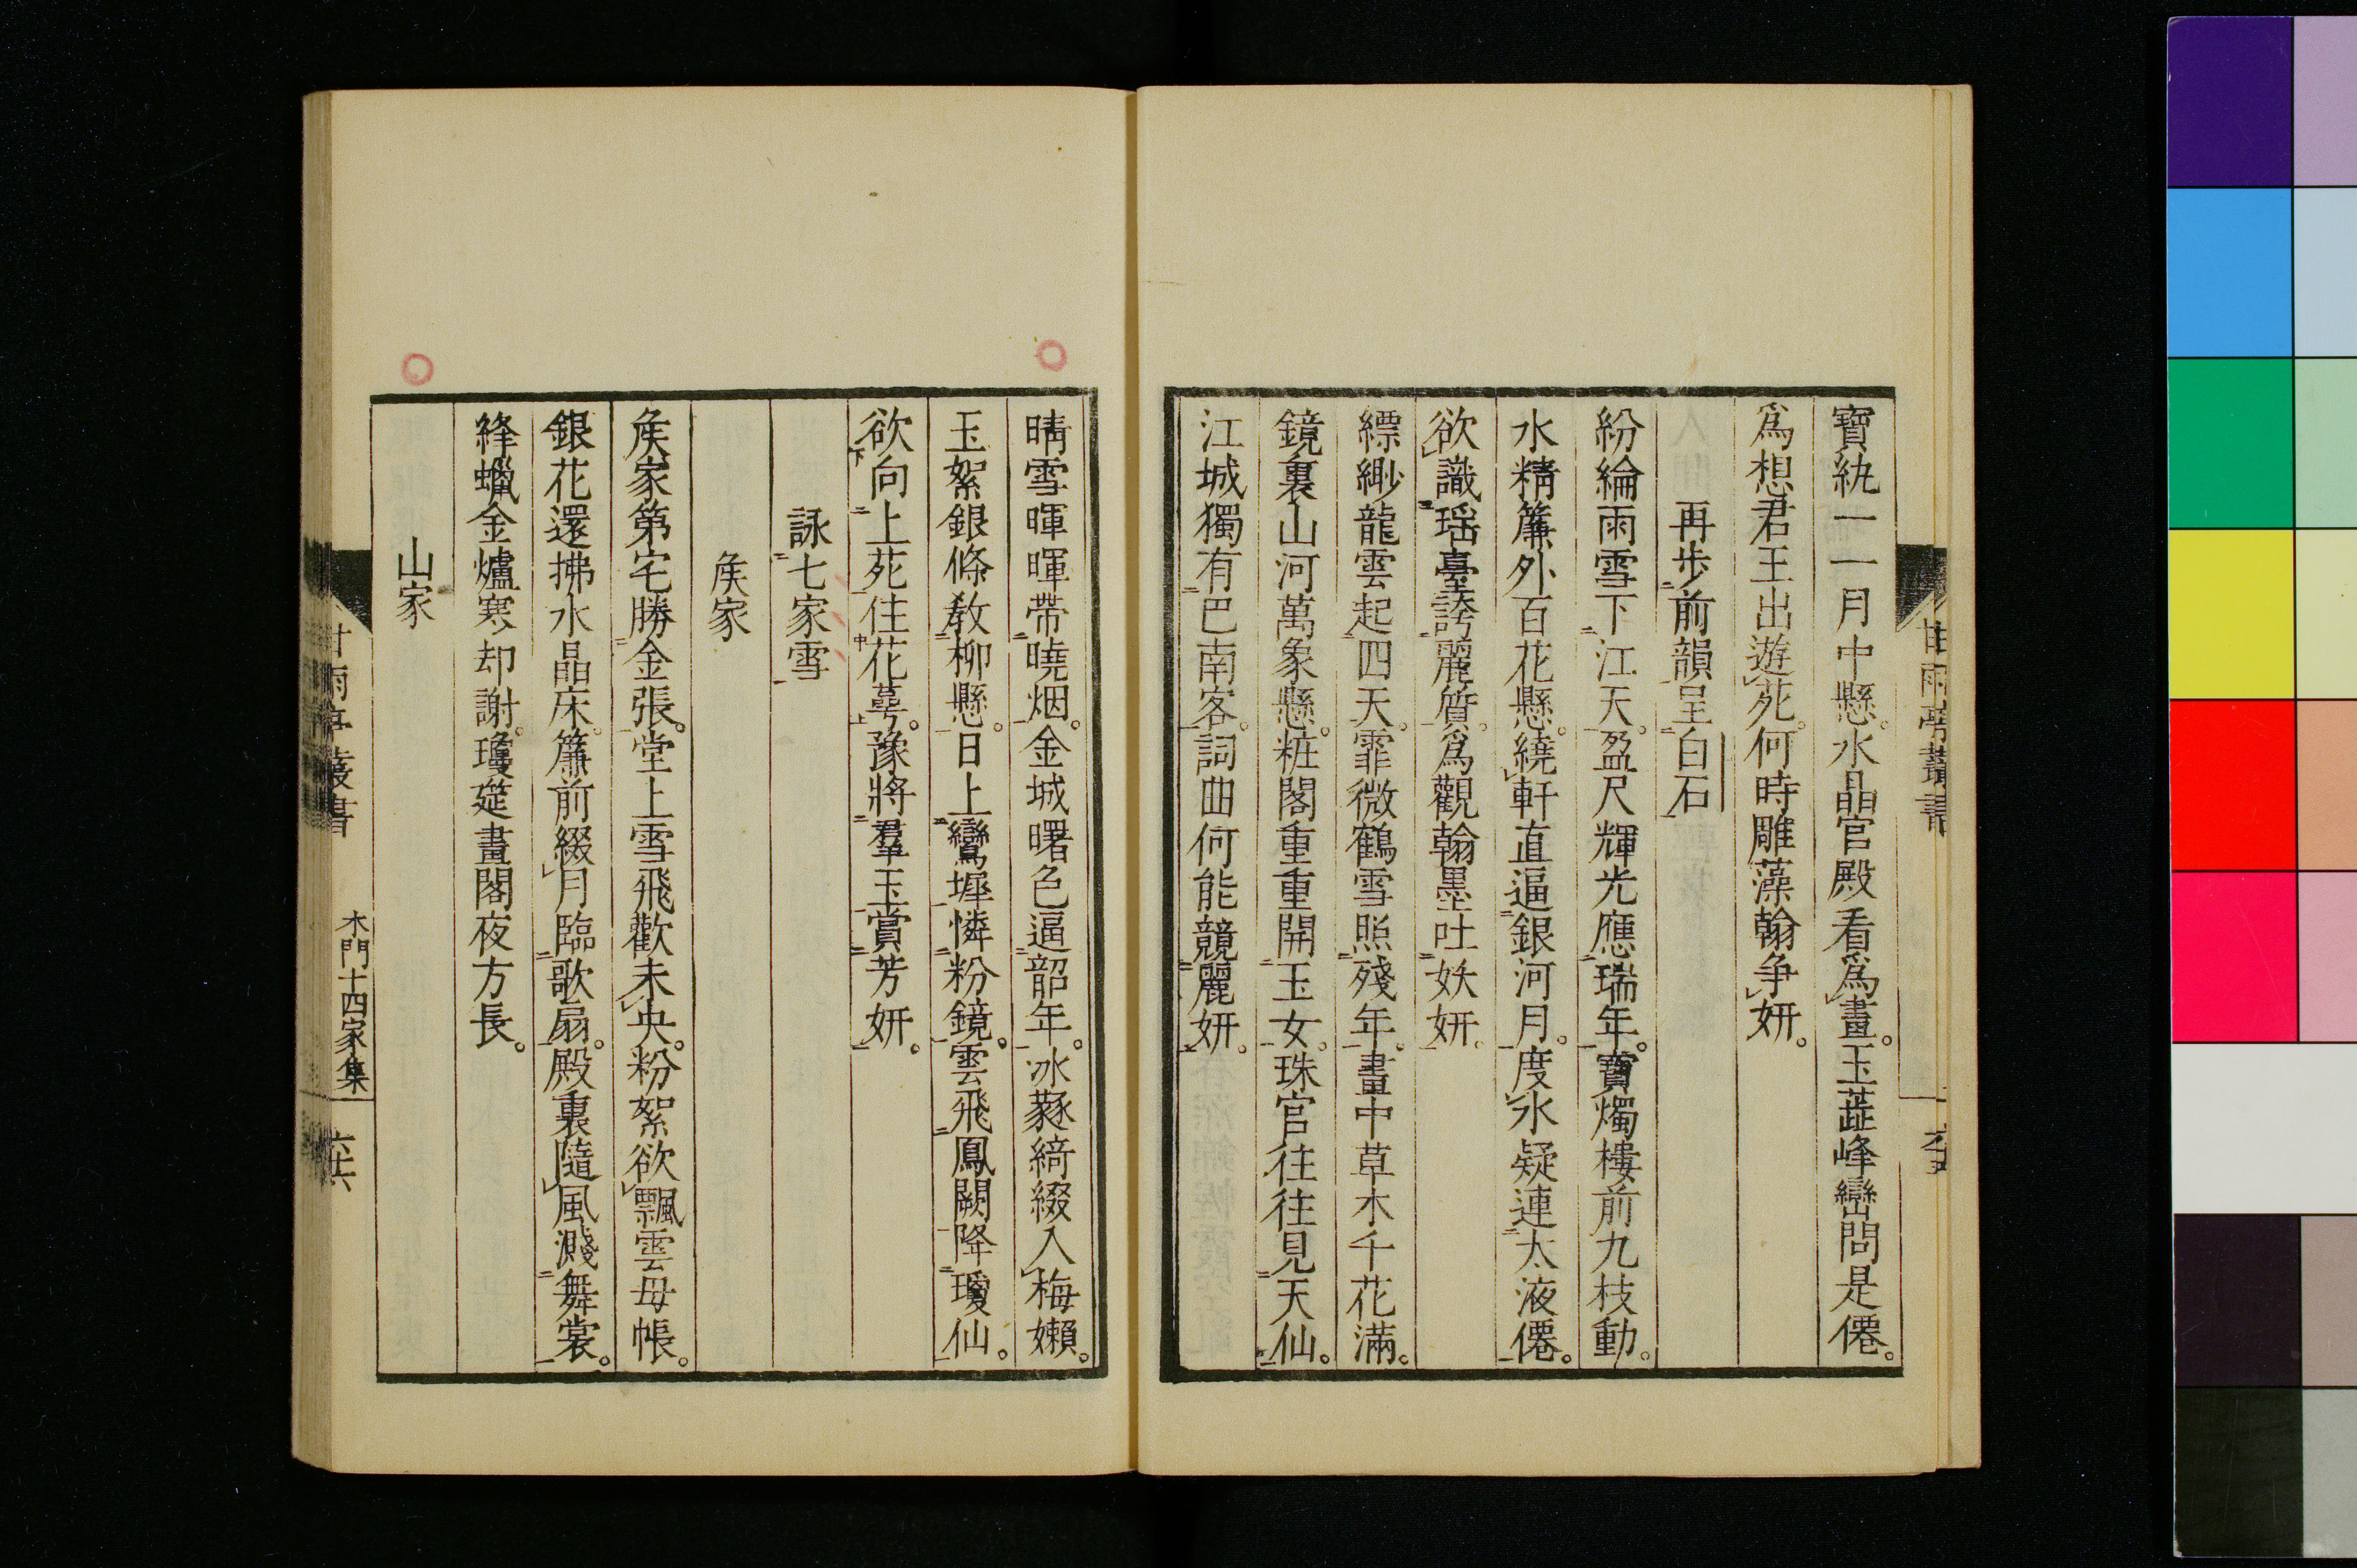 寶紈一一月中懸。水晶宮殿看爲畫。玉蕋峰巒問是僊。
爲想君王出遊苑。何時雕藻翰争妍。
再歩前韻呈白石
紛綸雨雪下江天。盈尺輝光應瑞年。寶燭樓前九枝動。
水精簾外百花懸。繞軒直逼銀河月。度水疑連太液僊。
欲識瑶臺誇麗質。爲觀翰墨吐妖妍。
縹緲龍雲起四天。霏微鶴雪照殘年。畫中草木千花滿。
鏡裏山河萬象懸。粧閣重重開玉女。珠宮往往見天仙。
江城獨有巴南客。詞曲何能競麗妍。
晴雪暉暉帶曉烟。金城曙色逼韶年。冰蘂綺綴入梅嬾。
玉絮銀條教柳懸。日上鸞墀憐粉鏡。雲飛鳳闕降瓊仙。
欲向上苑住花萼。豫將羣玉賞芳妍。
詠七家雪
矦家
矦家第宅勝金張。堂上雪飛歡未央。粉絮欲飄雲母帳。
銀花還拂水晶床。簾前綴月臨歌扇。殿裏隨風濺舞裳。
絳蠟金爐寒却謝。瓊筵畫閣夜方長。
山家
甘雨亭叢書 木門十四家集